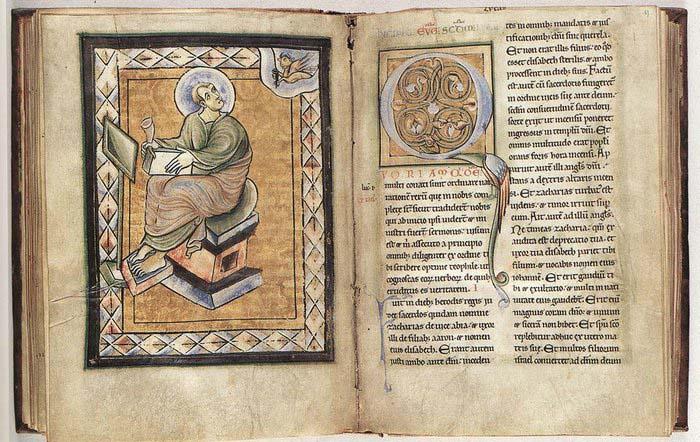 LUCE
EVG SCDM
Q
VONIAM QDE
multi conati sunt ordinare nar
rationem reru que in nobis
complete st sicut tradiderunt nobis
qui ab inicio ipsi viderunt &
ministri fuerunt sermonis: ui
sum e m assecuto a principio
omnib; diligenter ex ordine ti
bi scribere optime theophile ut
cognoscas eorum verborum de quib;
eruditus es veritatem.
uit in dieb; herodis regis iu
sacerdos quidam nomine
zacharias de vice abia & uxor
illi de filiab; aaron & nomen
eius elisabeth. Erant autem
iusti ambo ante dm inceden
tes in omnib; mandatis & ius
tificationib; dni sine querela.
Et non erat illis filius eo qd
esset elisabeth sterilis & ambo
processissent in dieb; suis. Factu
est aute cu sacerdotio fungeret
in ordine vicis sue ante deum
secdm consuetudinem sacerdotii
sorte exiit ut incensu poneret
ingressus in templu dni. Et
omnis multitudo erat populi
orans foris hora incensi. Ap
paruit aute illi angls dni
stans a dextris altaris incen
si. Et zacharias turbat est
videns & timor irruit sup
eum. Ait aute ad illu angls
Ne timeas zacharia: qm ex
audita est deprecatio tua &
uxor tua elisabeth pariet tibi
filium & vocabis nomen eius
iohannem. Et erit gaudiu ti
bi & exultatio & multi in nati
vitate eius gaudebt. Et eni
magnus coram dno & vinu
& sicera non bibet. Et spu sco
replebitur adhuc ex utero ma
tris sue. Et multos filiorum
israel convertet ad dnm deum